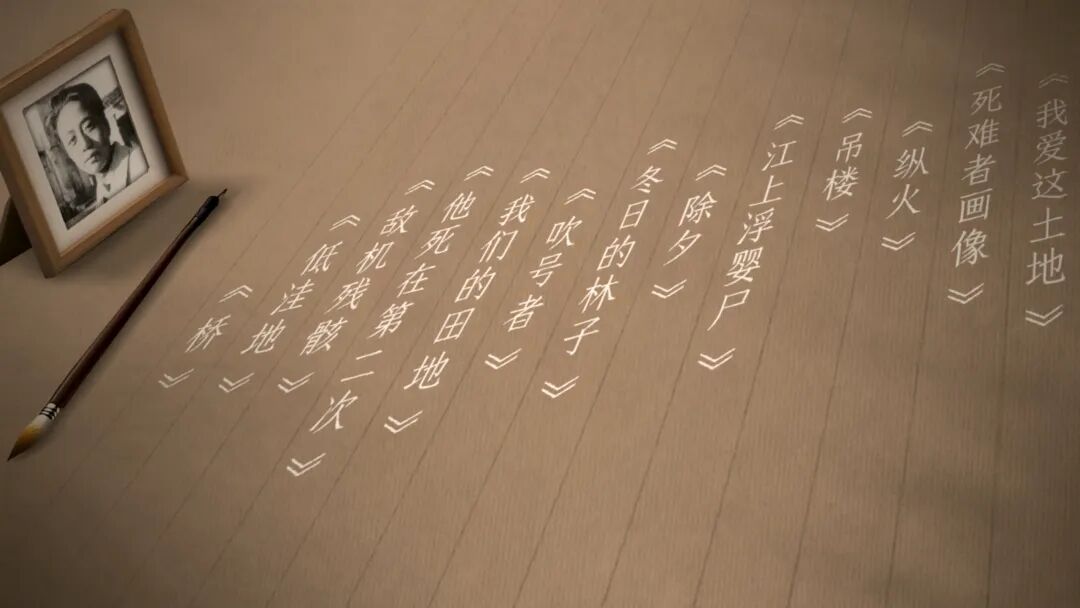 《我爱这土地》
《死难者画像》
《纵火》
《吊楼》
《江上浮婴尸》
《除夕》
《冬日的林子》
《吹号者》
《我们的田地》
《他死在第二次》
《敌机残骸》
《低洼地》
《桥》